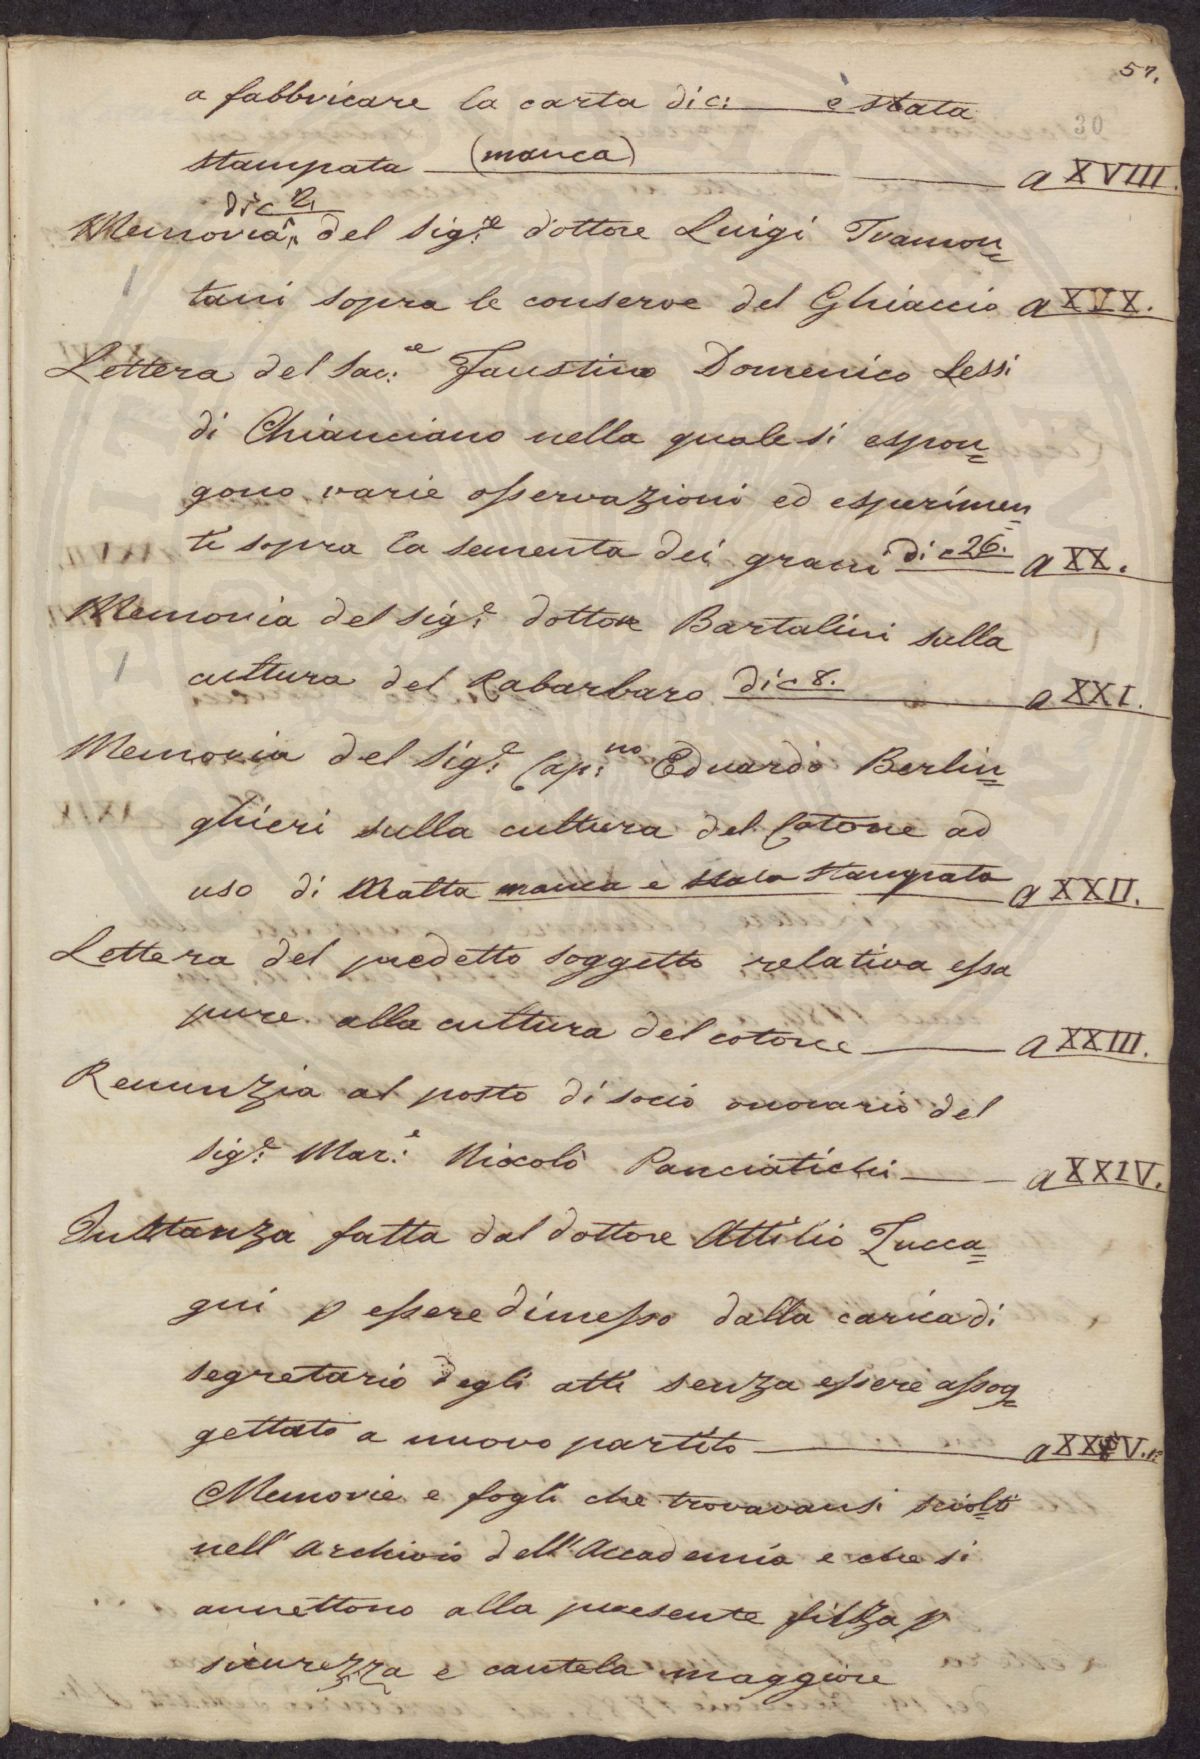 57.
30
a fabbricare la carta di c: è stata
stampata (manca) a XVIII
di c 12.
Memoria del Sig.re dottore Luigi Tramon=
tani sopra le conserve del Ghiaccio a XVX.
Lettera del Sac:te Faustino Domenico Lessi
di Chianciano nella quale si espon=
gono varie osservazioni ed esperimen=
ti sopra la sementa dei grani di c 26. a XX.
Memoria del Sig:e dottore Bartalini sulla
cultura del Rabarbaro di c 8. a XXI.
Memoria del Sig:e Cap:no Eduardo Berlin=
ghieri sulla cultura del Cotone ad
uso di Malta manca e stata stampata a XXII.
Lettera del predetto soggetto relativa essa
pure alla cultura del cotone a XXIII.
Renunzia al posto di socio onorario del
Sig:e Mar:e Niccolò Panciatichi a XXIV.
Instanza fatta dal dottore Attilio Zucca=
gni p essere dimesso dalla carica di
segretario degli atti senza essere assog=
gettato a nuovo partito a XXV.
Memorie e fogli che trovavansi sciolti
nell' archivio dell' Accademia e che si
annettono alla presente filza p
sicurezza e cautela maggiore